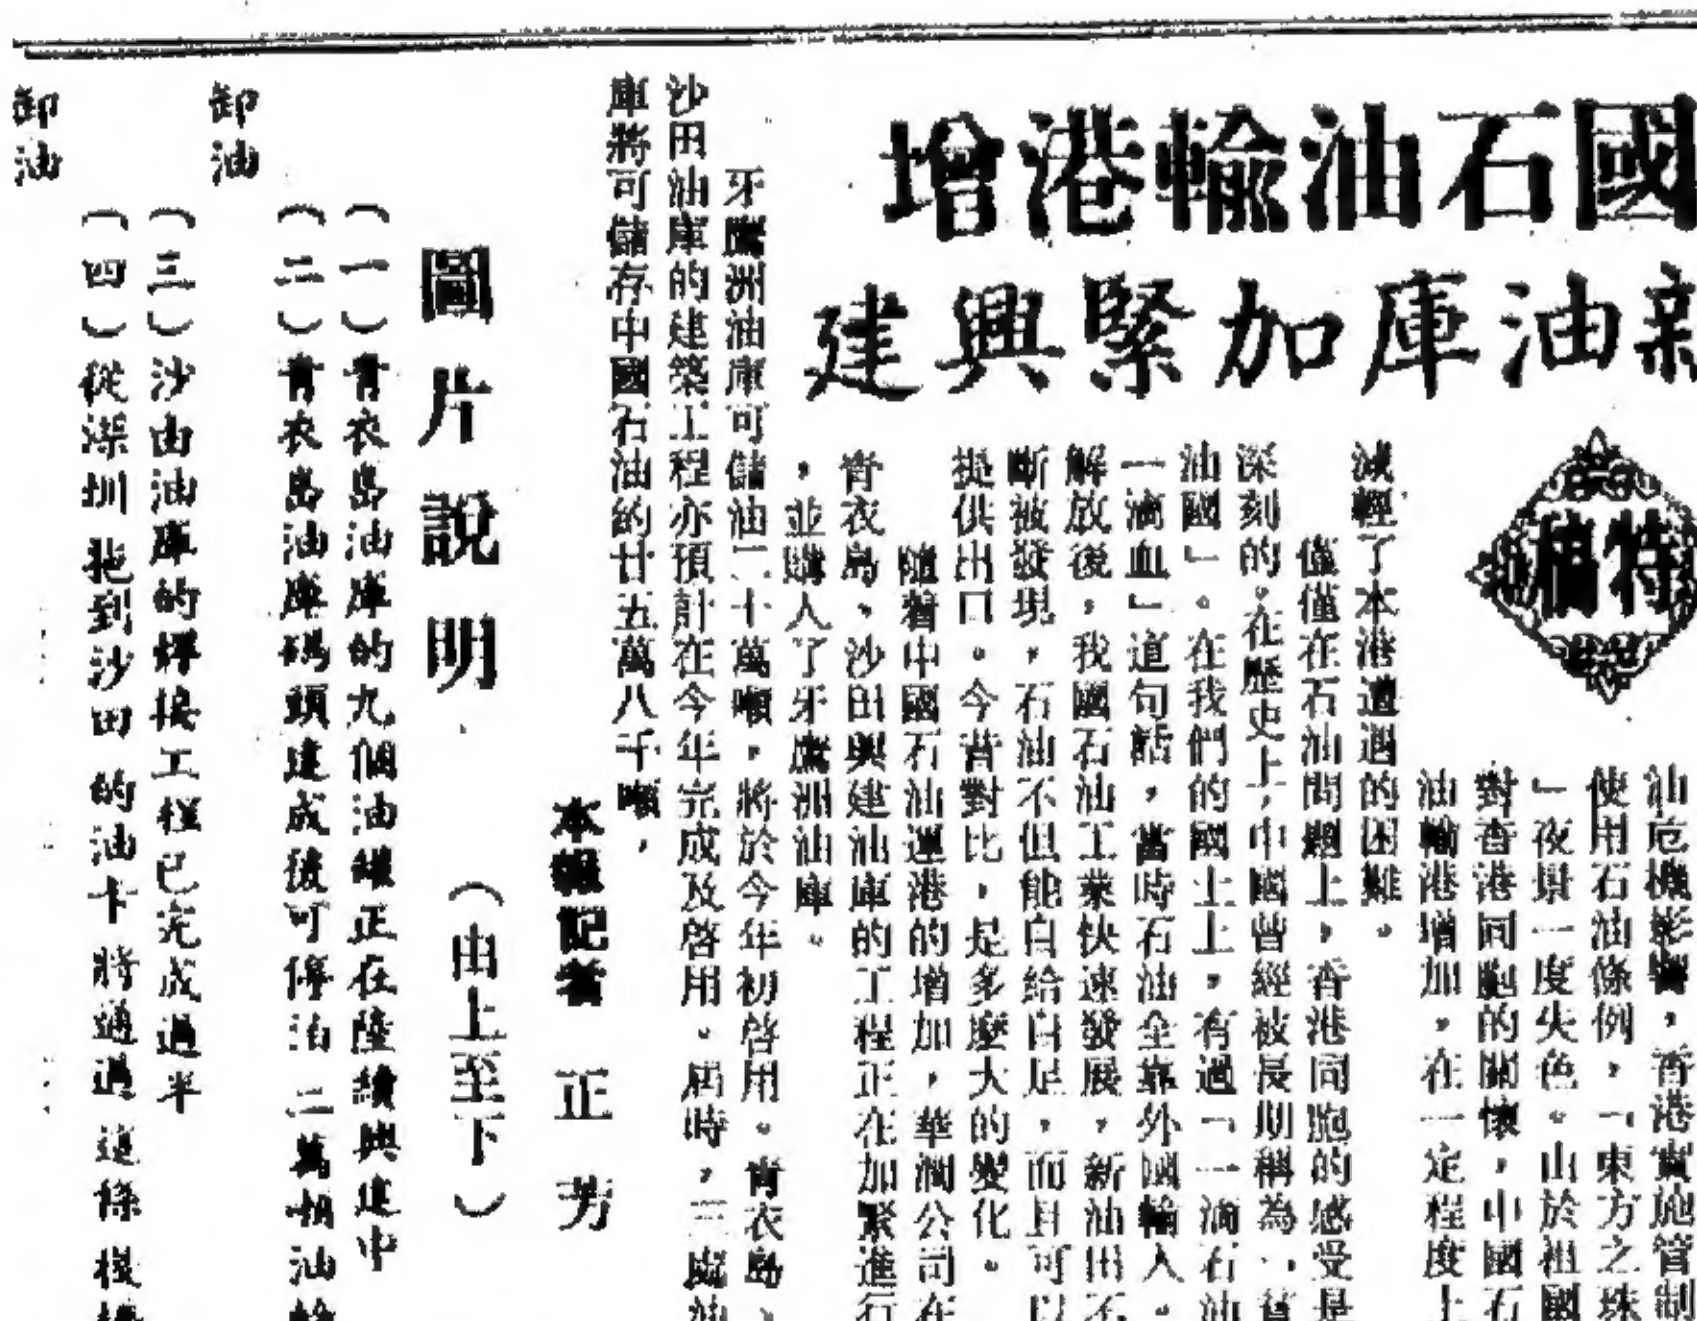 國石油輸港增
新油庫加緊興建
特稿
油危機影響，香港實施管制
使用石油條例，「東方之珠
」夜景一度失色。由於祖國
對香港同胞的關懷，中國石
油輸港增加，在一定程度上
減輕了本港遭遇的困難。
僅僅在石油問題上，香港同胞的感受是
深刻的。在歷史上，中國曾經被長期稱為「貧
油國」。在我們的國土上，有過「一滴石油
一滴血」這句話，當時石油全靠外國輸入。
解放後，我國石油工業快速發展，新油田不
斷被發現，石油不但能自給自足，而且可以
提供出口。今昔對比，是多麼大的變化。
隨着中國石油運港的增加，華潤公司在
青衣島，沙田興建油庫的工程正在加緊進行
，並購入了牙鷹洲油庫。
牙鷹洲油庫可儲油二十萬噸，將於今年初啓用。青衣島、
沙田油庫的建築工程亦預計在今年完成及啓用。屆時，三處油
庫將可儲存中國石油約廿五萬八千噸，
本報記者 正芳
圖片說明
（由上至下）
（一）青衣島油庫的九個油罐正在陸續興建中
（二）青衣島油庫碼頭建成後可停泊二萬噸油輪
卸油
（三）沙田油庫的焊接工程已完成過半
（四）從深圳拖到沙田的油卡將通過這條棧橋
卸油